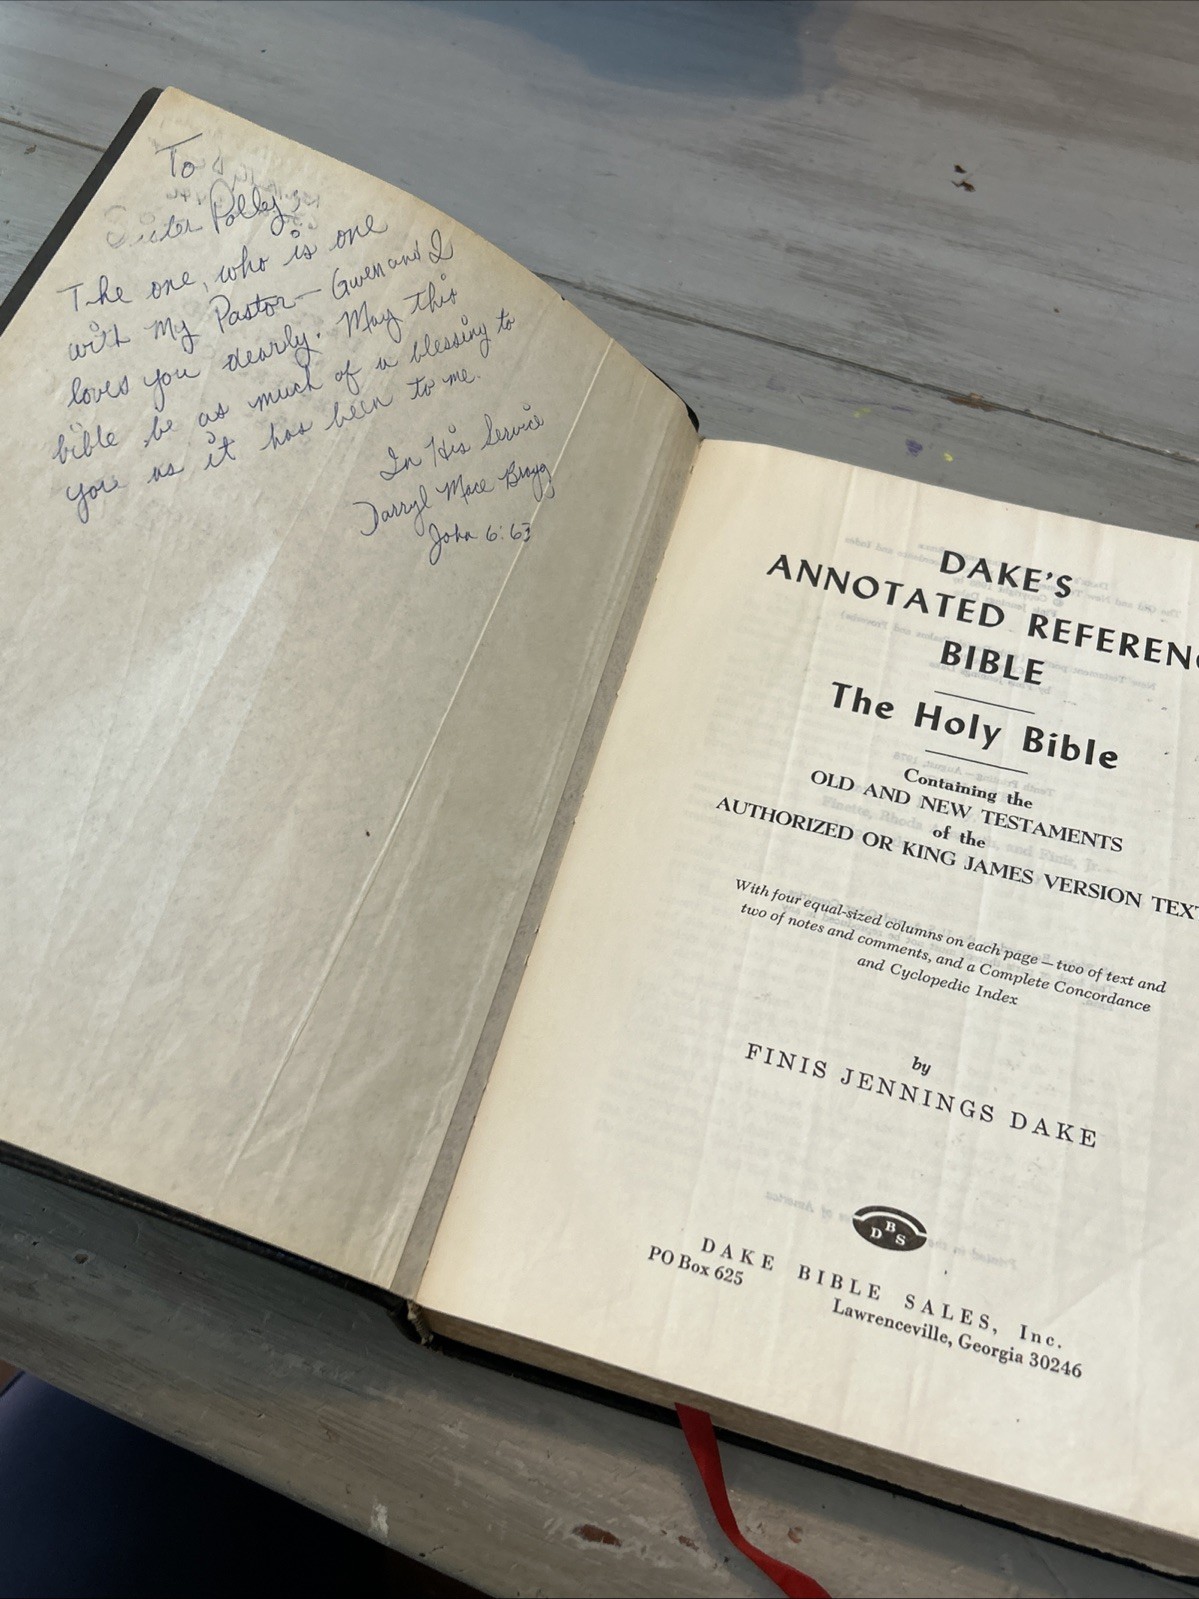 To
Sister Polley,
The one, who is one
with My Pastor — Gwen and I
loves you dearly. May this
bible be as much of a blessing to
you as it has been to me.
In His Service
Darryl Mace Bragg
John 6:63
DAKE'S
ANNOTATED REFERENC
BIBLE
The Holy Bible
Containing the
OLD AND NEW TESTAMENTS
of the
AUTHORIZED OR KING JAMES VERSION TEXT
With four equal-sized columns on each page — two of text and
two of notes and comments, and a Complete Concordance
and Cyclopedic Index
by
FINIS JENNINGS DAKE
DBS
DAKE BIBLE SALES, Inc.
PO Box 625
Lawrenceville, Georgia 30246